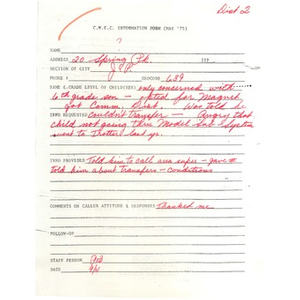 Dist 2
C.W.E.C. INFORMATION FORM (MAY '75)
NAME ?
ADDRESS 20 Spring Pk. ZIP
SECTION OF CITY J.P.
PHONE # GEOCODE 639
NAME & GRADE LEVEL OF CHILD(REN) only concerned with
6th grade son - opted for Magnet
got Comm. Dist. - Was told he
INFO REQUESTED Couldn't transfer - Angry that
child not going thru Model Sub System
went to Trotter last yr.
INFO PROVIDED Told him to call area super - gave #
told him about transfers - conditions
COMMENTS ON CALLER ATTITUDE & RESPONSES Thanked me
FOLLOW-UP
STAFF PERSON
DATE 9/2